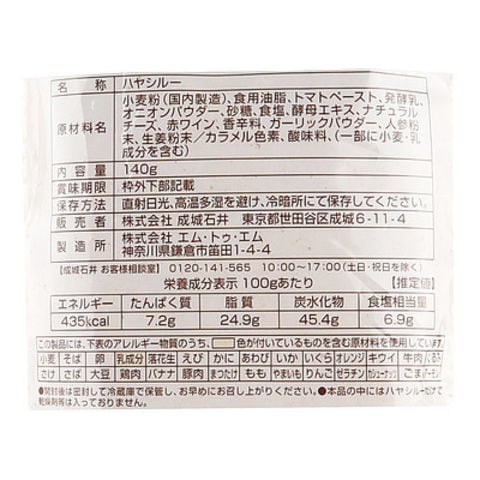 名称 ハヤシルー
原材料名 小麦粉(国内製造)、食用油脂、トマトペースト、発酵乳、
オニオンパウダー、砂糖、食塩、酵母エキス、ナチュラル
チーズ、赤ワイン、香辛料、ガーリックパウダー、人参粉
末、生姜粉末/カラメル色素、酸味料、(一部に小麦・乳
成分を含む)
内容量 140g
賞味期限 枠外下部記載
保存方法 直射日光、高温多湿を避け、冷暗所にて保存してください。
販売者 株式会社 成城石井 東京都世田谷区成城6-11-4
製造所 株式会社 エム・トゥ・エム
神奈川県鎌倉市笛田1-4-4
【成城石井 お客様相談室】 0120-141-565 10:00~17:00(土日・祝日を除く)
栄養成分表示 100gあたり 【推定値】
エネルギー たんぱく質 脂質 炭水化物 食塩相当量
435kcal 7.2g 24.9g 45.4g 6.9g
この製品には、下表のアレルギー物質のうち、 色が付いているものを含む原材料を使用しています。
小麦 そば 卵 乳成分 落花生 えび かに あわび いか いくら オレンジ キウイ 牛肉 くるみ
さけ さば 大豆 鶏肉 バナナ 豚肉 まつたけ もも やまいも りんご ゼラチン カシューナッツ ごま
●開封後は密封して冷蔵庫で保管し、お早めにお召し上がりください。 ●本品の中にはハヤシルーだけで
乾燥剤等は入っておりません。